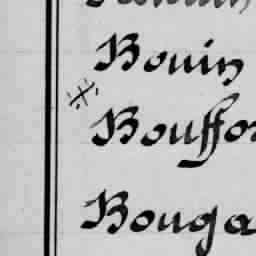 Bouin
Bouffor
Bouga